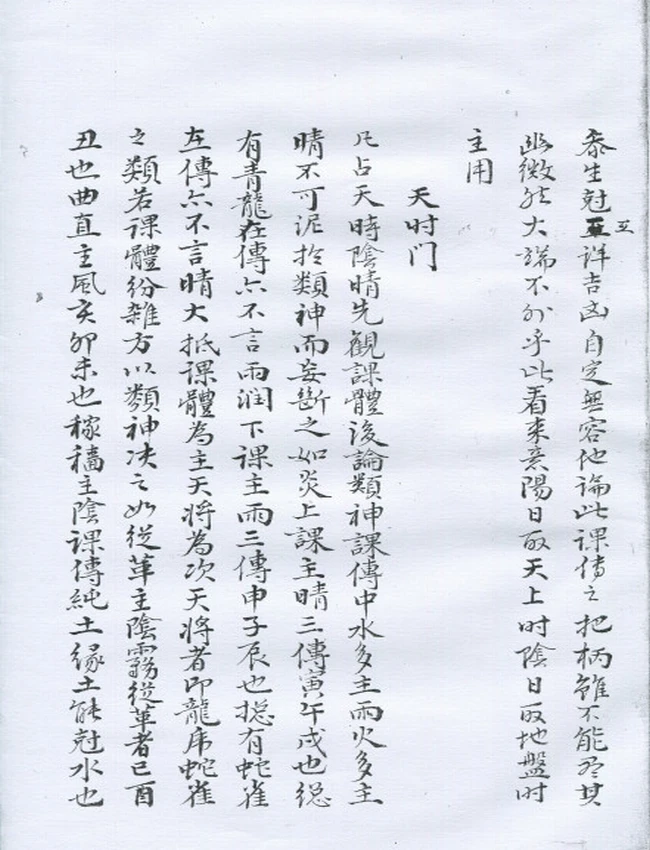 泰生尅互詳吉凶自定無容他論此課傳之把柄雖不能尽其
互
幽微然大端不外乎此看來意陽日取天上时陰日取地盤时
主用
天时门
凡占天時陰晴先觀課體後論類神課傳中水多主雨火多主
晴不可泥於類神而妄斷之如炎上課主晴三傳寅午戌也縂
有青龍在傳亦不言雨润下課主雨三傳申子辰也揔有蛇雀
在傳亦不言晴大抵課體為主天将為次天將者即龍虎蛇雀
之類若課體紛雜方以類神决之如從革主陰霧從革者巳酉
丑也曲直主風亥卯未也稼穡主陰課傳純土缘土能尅水也